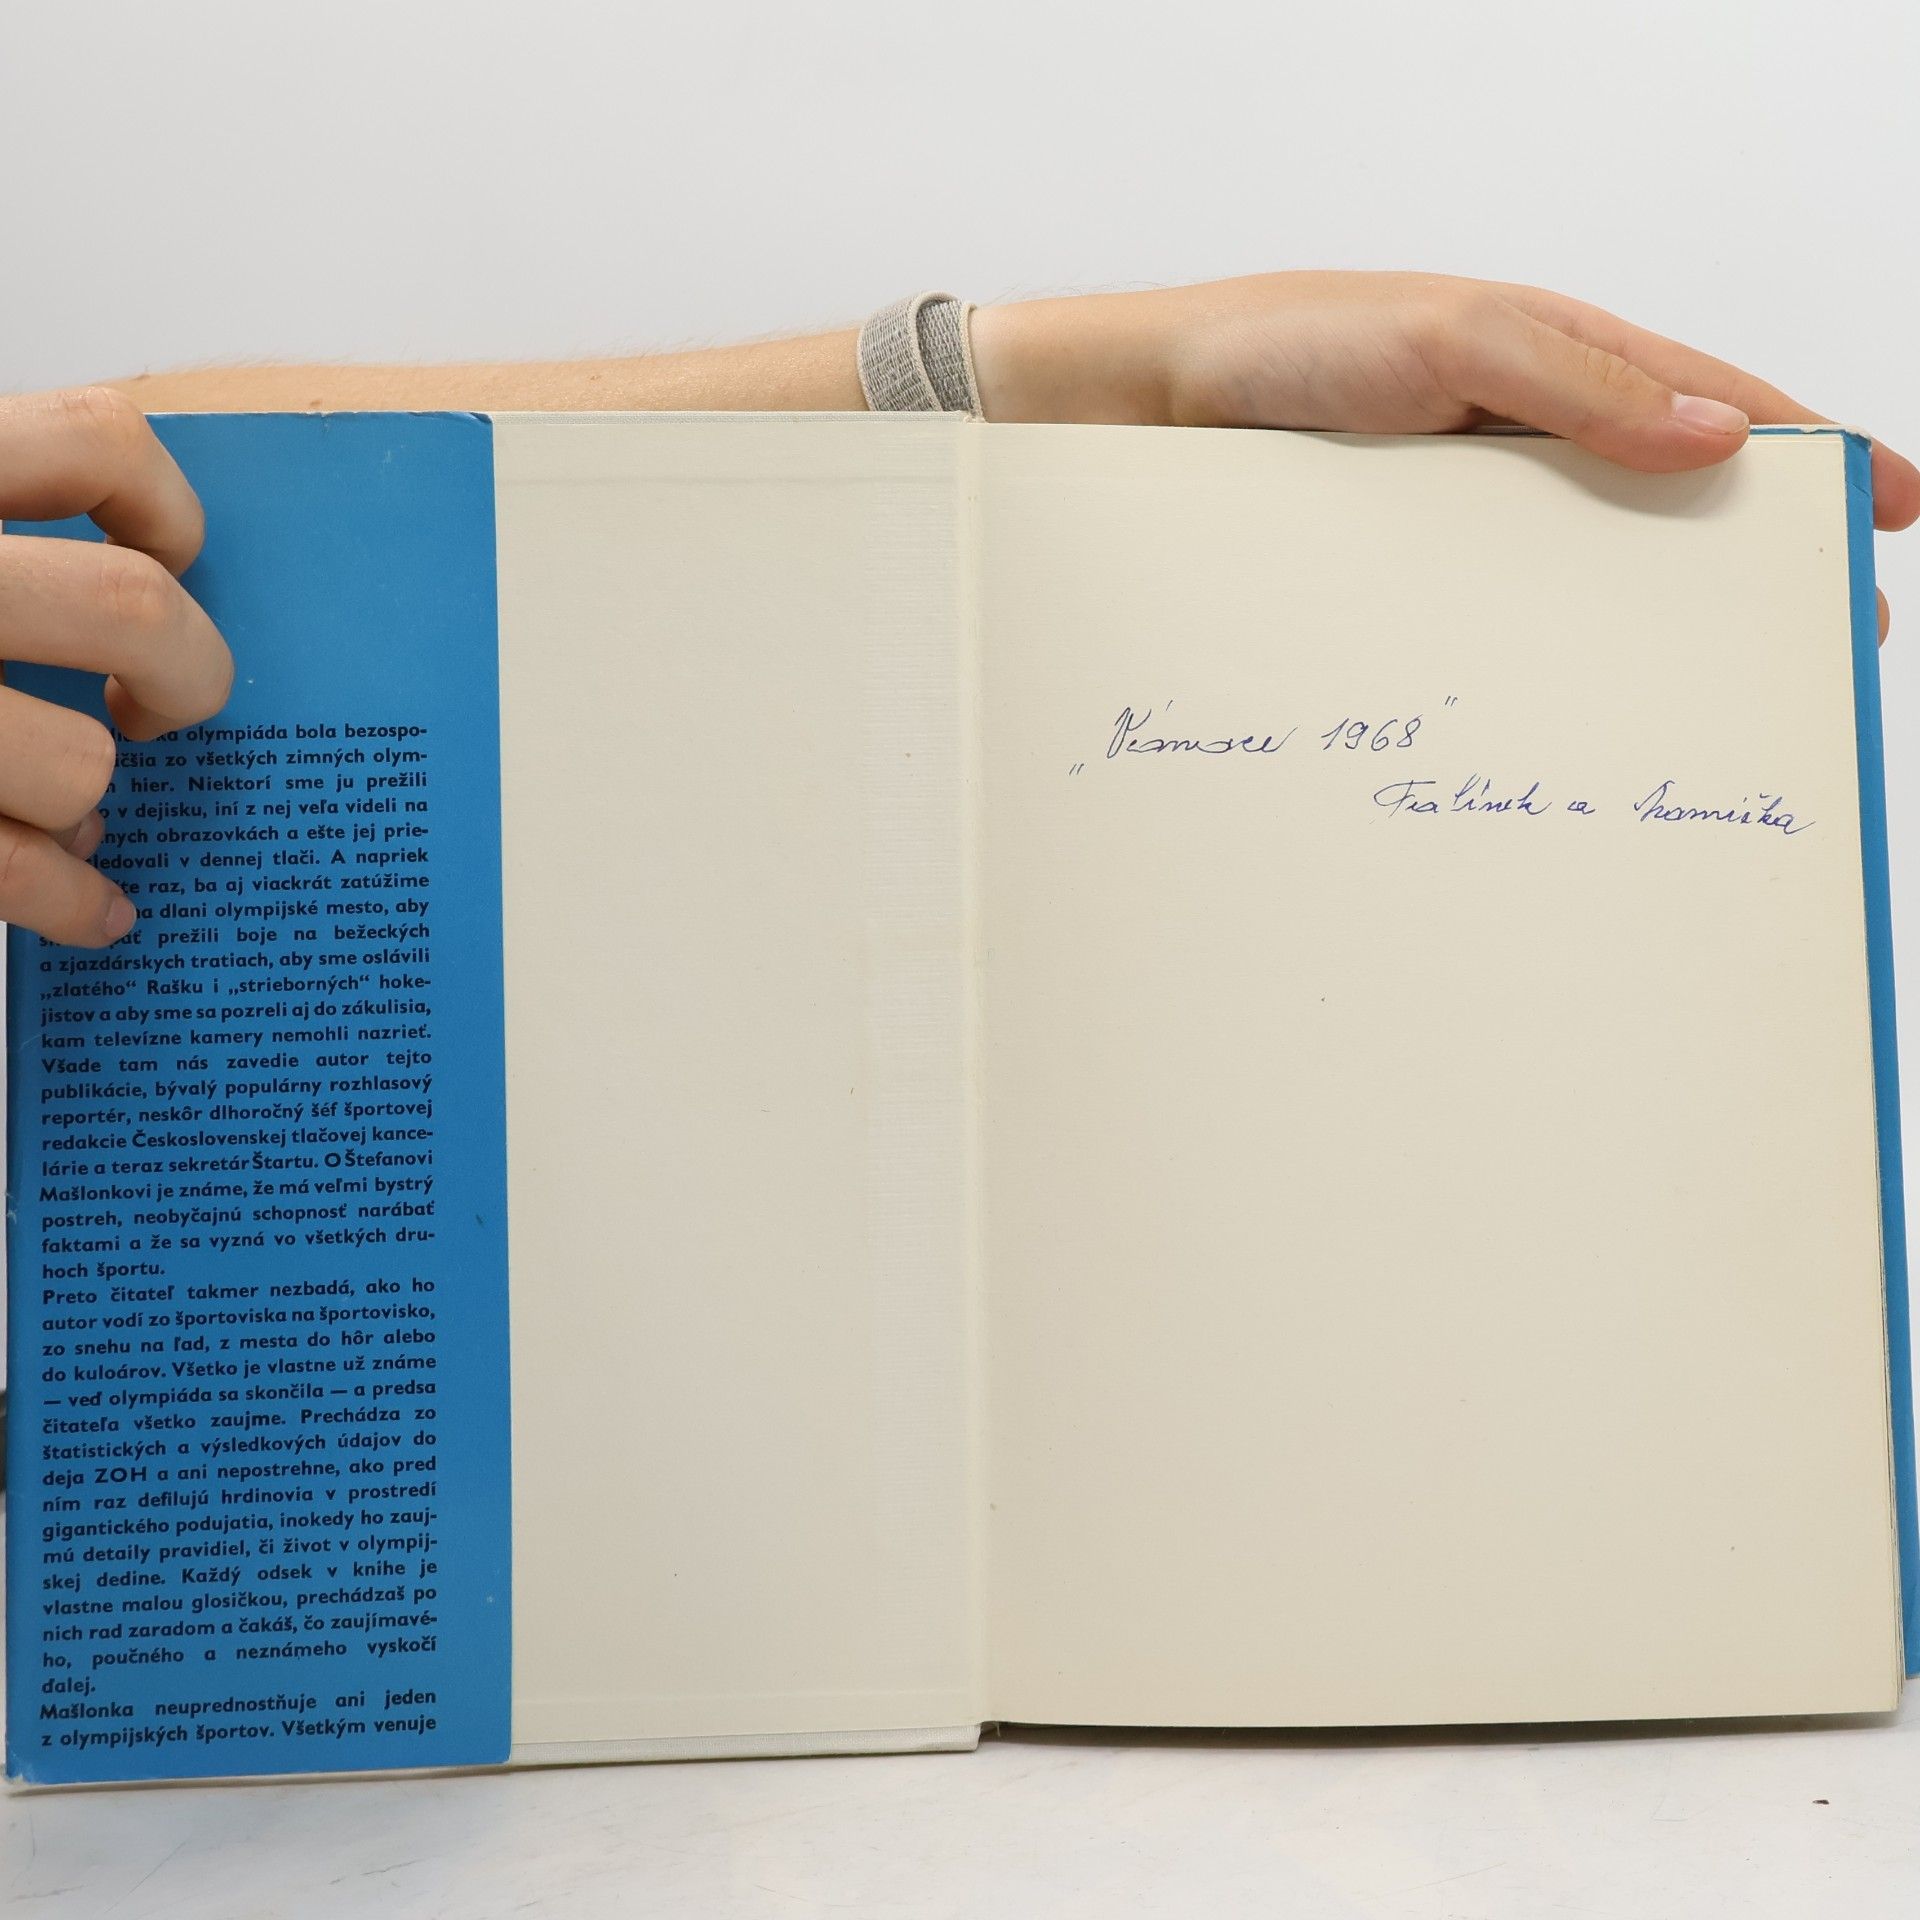 olympiáda bola bezospo-
zo všetkých zimných olym-
hier. Niektorí sme ju prežili
v dejisku, iní z nej veľa videli na
obrazovkách a ešte jej prie-
sledovali v dennej tlači. A napriek
raz, ba aj viackrát zatúžime
na dlani olympijské mesto, aby
prežili boje na bežeckých
a zjazdárskych tratiach, aby sme oslávili
„zlatého“ Rašku i „strieborných“ hoke-
jistov a aby sme sa pozreli aj do zákulisia,
kam televízne kamery nemohli nazrieť.
Všade tam nás zavedie autor tejto
publikácie, bývalý populárny rozhlasový
reportér, neskôr dlhoročný šéf športovej
redakcie Československej tlačovej kance-
lárie a teraz sekretár Štartu. O Štefanovi
Mašlonkovi je známe, že má veľmi bystrý
postreh, neobyčajnú schopnosť narábať
faktami a že sa vyzná vo všetkých dru-
hoch športu.
Preto čitateľ takmer nezbadá, ako ho
autor vodí zo športoviska na športovisko,
zo snehu na ľad, z mesta do hôr alebo
do kuloárov. Všetko je vlastne už známe
— veď olympiáda sa skončila — a predsa
čitateľa všetko zaujme. Prechádza zo
štatistických a výsledkových údajov do
deja ZOH a ani nepostrehne, ako pred
ním raz defilujú hrdinovia v prostredí
gigantického podujatia, inokedy ho zauj-
mú detaily pravidiel, či život v olympij-
skej dedine. Každý odsek v knihe je
vlastne malou glosičkou, prechádzaš po
nich rad zaradom a čakáš, čo zaujímavé-
ho, poučného a neznámeho vyskočí
ďalej.
Mašlonka neuprednostňuje ani jeden
z olympijských športov. Všetkým venuje
„Vianoce 1968"
a mamička